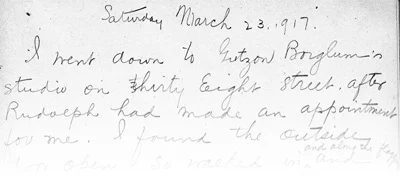 Saturday March 23. 1917.
I went down to Gutzon Borglum's
studio on Thirty Eight Street. after
Rudolph had made an appointment
for me. I found the outside
and along the
open. So walked in, and